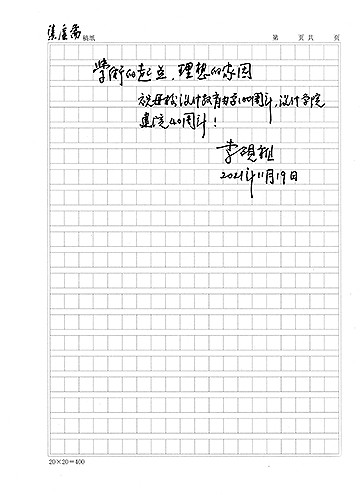 稿纸 第 页 共 页
学术的起点，理想的家园
祝母校设计教育办学100周年，设计学院
建院40周年！
李砚祖
2021年11月19日
20×20=400